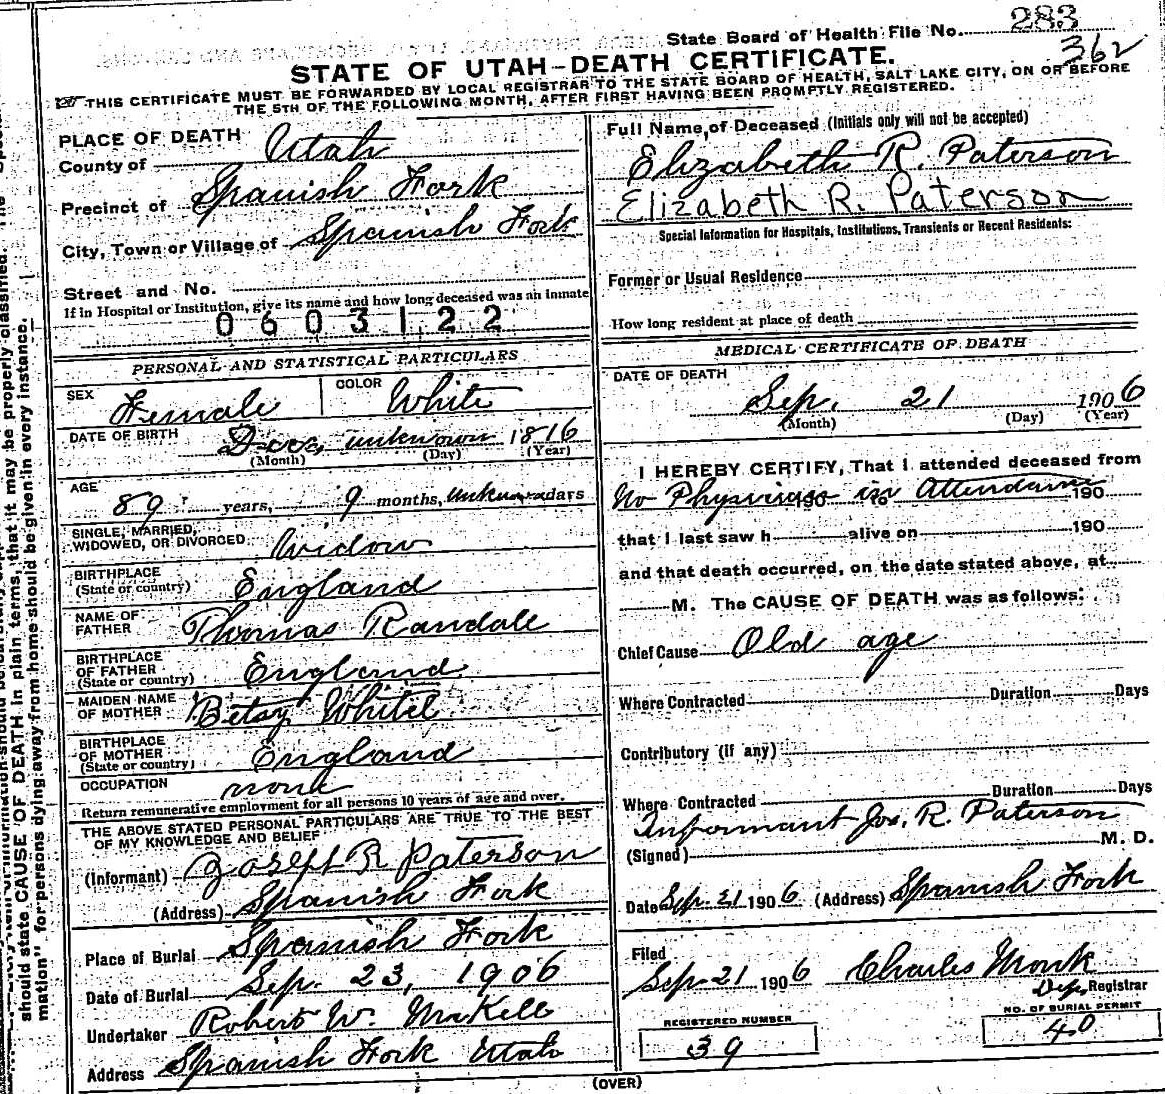 State Board of Health File No. 283
362
STATE OF UTAH—DEATH CERTIFICATE.
THIS CERTIFICATE MUST BE FORWARDED BY LOCAL REGISTRAR TO THE STATE BOARD OF HEALTH, SALT LAKE CITY, ON OR BEFORE
THE 5TH OF THE FOLLOWING MONTH, AFTER FIRST HAVING BEEN PROMPTLY REGISTERED.
PLACE OF DEATH
County of Utah
Precinct of Spanish Fork
City, Town or Village of Spanish Fork
Street and No.
If in Hospital or Institution, give its name and how long deceased was an inmate
0603122
PERSONAL AND STATISTICAL PARTICULARS
SEX Female COLOR White
DATE OF BIRTH Dec, unknown 1816
(Month) (Day) (Year)
AGE
89 years, 9 months, unknown days
SINGLE, MARRIED,
WIDOWED, OR DIVORCED Widow
BIRTHPLACE
(State or country) England
NAME OF
FATHER Thomas Randale
BIRTHPLACE
OF FATHER
(State or country) England
MAIDEN NAME
OF MOTHER Betsy Whitel
BIRTHPLACE
OF MOTHER
(State or country) England
OCCUPATION none
Return remunerative employment for all persons 10 years of age and over.
THE ABOVE STATED PERSONAL PARTICULARS ARE TRUE TO THE BEST
OF MY KNOWLEDGE AND BELIEF
(Informant) Joseph R Paterson
(Address) Spanish Fork
Place of Burial Spanish Fork
Date of Burial Sep. 23, 1906
Undertaker Robert W. McKell
Address Spanish Fork Utah
Full Name of Deceased (Initials only will not be accepted)
Elizabeth R. Paterson
Elizabeth R. Paterson
Special Information for Hospitals, Institutions, Transients or Recent Residents:
Former or Usual Residence
How long resident at place of death
MEDICAL CERTIFICATE OF DEATH
DATE OF DEATH
Sep. 21 1906
(Month) (Day) (Year)
I HEREBY CERTIFY, That I attended deceased from
No Physician in Attendance 190 to 190
that I last saw h alive on 190
and that death occurred, on the date stated above, at
M. The CAUSE OF DEATH was as follows:
Chief Cause Old age
Where Contracted Duration Days
Contributory (if any)
Where Contracted Duration Days
Informant Jos. R. Paterson
(Signed) M. D.
Date Sep. 21 1906 (Address) Spanish Fork
Filed
Sep 21 1906 Charles Monk
Dep. Registrar
REGISTERED NUMBER
39
NO. OF BURIAL PERMIT
40
(OVER)
should state CAUSE OF DEATH in plain terms, that it may be properly classified. The
mation" for persons dying away from home should be given in every instance.